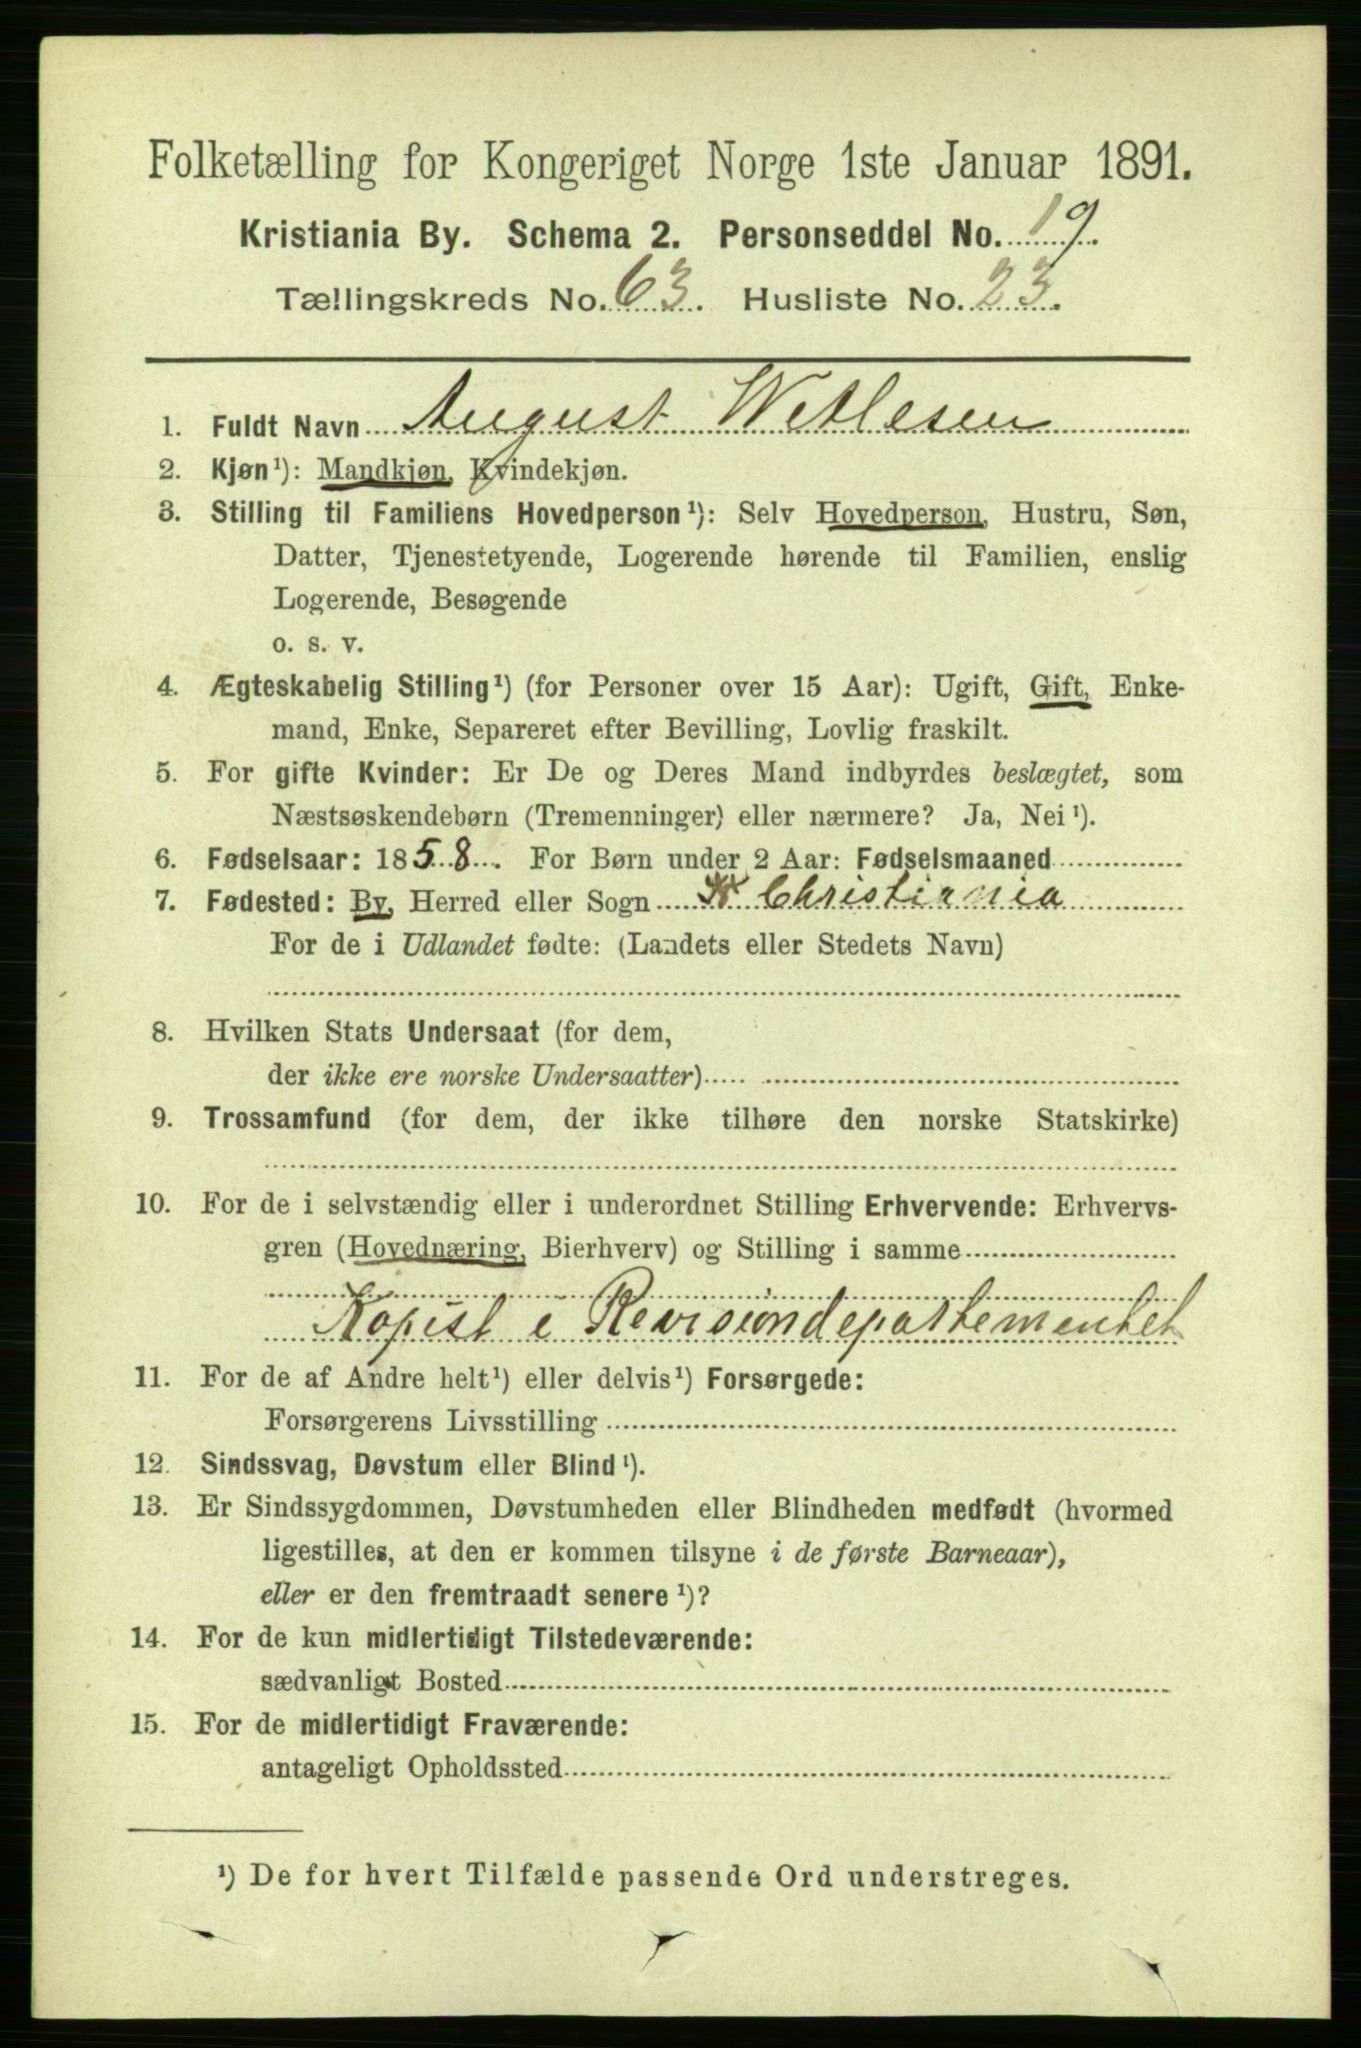 Folketælling for Kongeriget Norge 1ste Januar 1891.
Kristiania By. Schema 2. Personseddel No. 19.
Tællingskreds No. 63. Husliste No. 23.
1. Fuldt Navn August Wetlesen
2. Kjøn¹): Mandkjøn, Kvindekjøn.
3. Stilling til Familiens Hovedperson¹): Selv Hovedperson, Hustru, Søn,
Datter, Tjenestetyende, Logerende hørende til Familien, enslig
Logerende, Besøgende
o. s. v.
4. Ægteskabelig Stilling¹) (for Personer over 15 Aar): Ugift, Gift, Enke-
mand, Enke, Separeret efter Bevilling, Lovlig fraskilt.
5. For gifte Kvinder: Er De og Deres Mand indbyrdes beslægtet, som
Næstsøskendebørn (Tremenninger) eller nærmere? Ja, Nei¹).
6. Fødselsaar: 1858. For Børn under 2 Aar: Fødselsmaaned
7. Fødested: By, Herred eller Sogn Christiania
For de i Udlandet fødte: (Landets eller Stedets Navn)
8. Hvilken Stats Undersaat (for dem,
der ikke ere norske Undersaatter)
9. Trossamfund (for dem, der ikke tilhøre den norske Statskirke)
10. For de i selvstændig eller i underordnet Stilling Erhvervende: Erhvervs-
gren (Hovednæring, Bierhverv) og Stilling i samme
Kopist i Revisiondepartementet
11. For de af Andre helt¹) eller delvis¹) Forsørgede:
Forsørgerens Livsstilling
12. Sindssvag, Døvstum eller Blind¹).
13. Er Sindssygdommen, Døvstumheden eller Blindheden medfødt (hvormed
ligestilles, at den er kommen tilsyne i de første Barneaar),
eller er den fremtraadt senere¹)?
14. For de kun midlertidigt Tilstedeværende:
sædvanligt Bosted
15. For de midlertidigt Fraværende:
antageligt Opholdssted
¹) De for hvert Tilfælde passende Ord understreges.